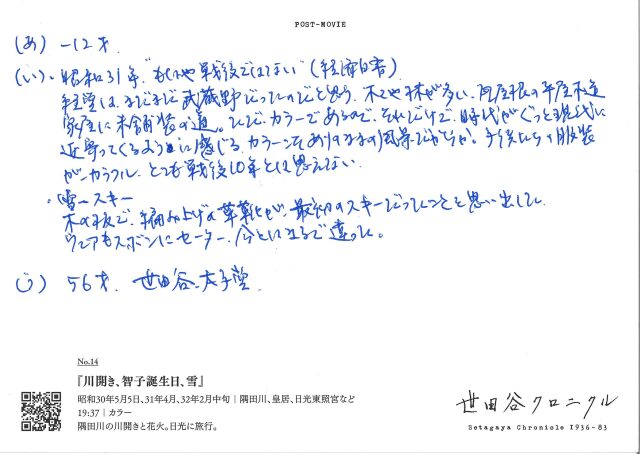 POST-MOVIE
(あ) -12才.
(い)・昭和31年 "もはや戦後ではない" (経済白書)
経堂は、まだまだ武蔵野だったのだと思う. 木々や林が多い. 瓦屋根の平屋木造
家屋に未舗装の道。ひでカラーであるので、それだけで、時代がぐっと現代に
近寄ってくるように感じる. カラーこそありのままの風景だからか. 子供たちの服装
がカラフル. とても戦後10年とは思えない.
・雪-スキー
木の板で、編み上げの革靴が、最初のスキーだったことを思い出した.
ウェアもズボンにセーター. 今とはまるで違った。
(う) 56才. 世田谷.太子堂.
No.14
『川開き、智子誕生日、雪』
昭和30年5月5日、31年4月、32年2月中旬|隅田川、皇居、日光東照宮など
19:37|カラー
隅田川の川開きと花火。日光に旅行。
世田谷クロニクル
Setagaya Chronicle 1936-83